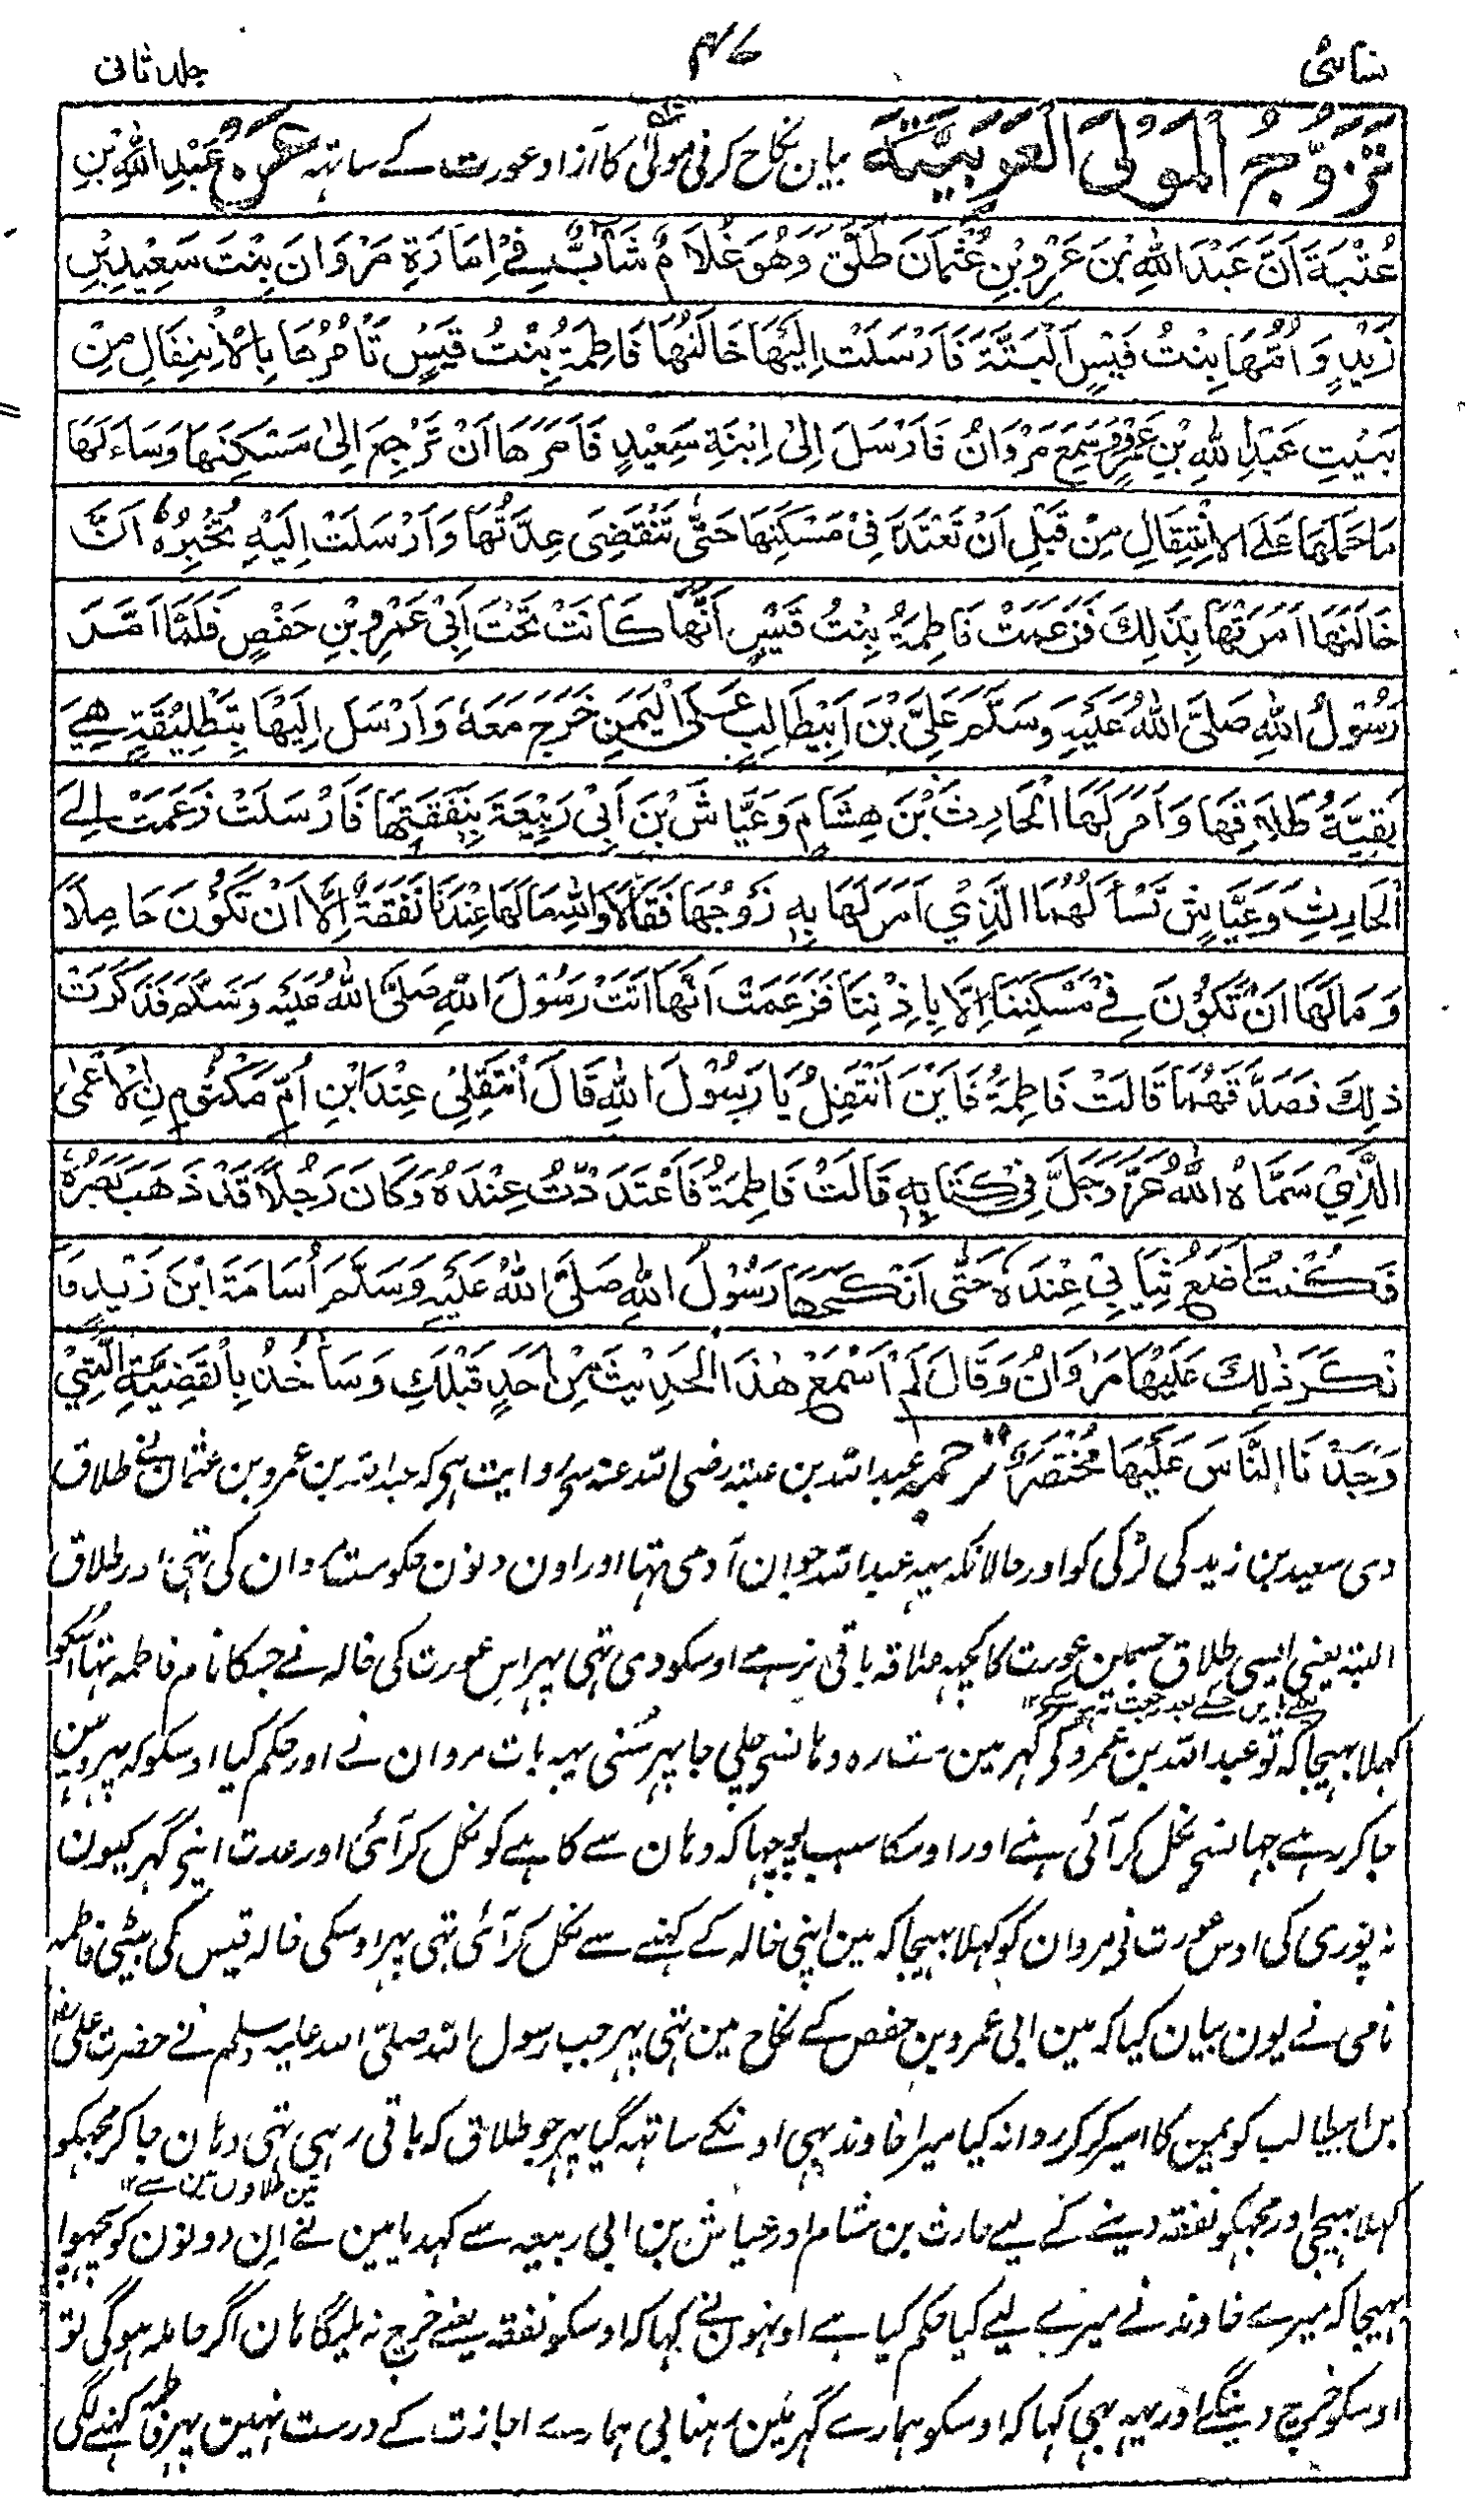 نسائی
۴۷
جلد ثانی
تَزَوُّجُ الْمَوْلَى الْعَرَبِيَّةَ بیان نکاح کرنی مولیٰ کا آزاد عورت کے ساتہہ عَنْ عَبْدِ اللّٰهِ بْنِ
عُتْبَةَ اَنَّ عَبْدَ اللّٰهِ بْنَ عَمْرِو بْنِ عُثْمَانَ طَلَّقَ وَهُوَ غُلَامٌ شَابٌّ فِیْ اِمَارَةِ مَرْوَانَ بِنْتَ سَعِيْدِ بْنِ
زَيْدٍ وَاُمُّهَا بِنْتُ قَيْسٍ اَلْبَتَّةَ فَاَرْسَلَتْ اِلَيْهَا خَالَتُهَا فَاطِمَةُ بِنْتُ قَيْسٍ تَاْمُرُهَا بِالْاِنْتِقَالِ مِنْ
بَيْتِ عَبْدِ اللّٰهِ بْنِ عَمْرٍو وَسَمِعَ مَرْوَانُ فَاَرْسَلَ اِلٰى اِبْنَةِ سَعِيْدٍ فَاَمَرَهَا اَنْ تَرْجِعَ اِلٰى مَسْكَنِهَا وَسَاَلَهَا
مَا حَمَلَهَا عَلَى الْاِنْتِقَالِ مِنْ قَبْلِ اَنْ تَعْتَدَّ فِیْ مَسْكَنِهَا حَتّٰى تَنْقَضِیَ عِدَّتُهَا وَاَرْسَلَتْ اِلَيْهِ تُخْبِرُهُ اَنَّ
خَالَتَهَا اَمَرَتْهَا بِذٰلِكَ فَزَعَمَتْ فَاطِمَةُ بِنْتُ قَيْسٍ اَنَّهَا كَانَتْ تَحْتَ اَبِیْ عَمْرِو بْنِ حَفْصٍ فَلَمَّا اَمَّرَ
رَسُوْلُ اللّٰهِ صَلَّى اللّٰهُ عَلَيْهِ وَسَلَّمَ عَلِیَّ بْنَ اَبِيْطَالِبٍ عَلَى الْيَمَنِ خَرَجَ مَعَهٗ وَاَرْسَلَ اِلَيْهَا بِتَطْلِيْقَةٍ هِیَ
بَقِيَّةُ طَلَاقِهَا وَاَمَرَ لَهَا الْحَارِثَ بْنَ هِشَامٍ وَعَيَّاشَ بْنَ اَبِیْ رَبِيْعَةَ بِنَفَقَتِهَا فَاَرْسَلَتْ زَعَمَتْ اِلَى
الْحَارِثِ وَعَيَّاشٍ تَسْأَلُهُمَا الَّذِیْ اَمَرَ لَهَا بِهٖ زَوْجُهَا فَقَالَا وَاللّٰهِ مَا لَهَا عِنْدَنَا نَفَقَةٌ اِلَّا اَنْ تَكُوْنَ حَامِلًا
وَمَا لَهَا اَنْ تَكُوْنَ فِیْ مَسْكَنِنَا اِلَّا بِاِذْنِنَا فَزَعَمَتْ اَنَّهَا اَتَتْ رَسُوْلَ اللّٰهِ صَلَّى اللّٰهُ عَلَيْهِ وَسَلَّمَ فَذَكَرَتْ
ذٰلِكَ فَصَدَّقَهُمَا قَالَتْ فَاطِمَةُ فَاَيْنَ اَنْتَقِلُ يَا رَسُوْلَ اللّٰهِ قَالَ اَنْتَقِلِیْ عِنْدَ ابْنِ اُمِّ مَكْتُوْمِ نِ الْاَعْمٰى
الَّذِیْ سَمَّاهُ اللّٰهُ عَزَّ وَجَلَّ فِیْ كِتَابِهٖ قَالَتْ فَاطِمَةُ فَاعْتَدَدْتُ عِنْدَهٗ وَكَانَ رَجُلًا قَدْ ذَهَبَ بَصَرُهٗ
فَكُنْتُ اَضَعُ ثِيَابِیْ عِنْدَهٗ حَتّٰى اَنْكَحَهَا رَسُوْلُ اللّٰهِ صَلَّى اللّٰهُ عَلَيْهِ وَسَلَّمَ اُسَامَةَ ابْنَ زَيْدٍ فَاَ
نْكَرَ ذٰلِكَ عَلَيْهَا مَرْوَانُ وَقَالَ لَمْ اَسْمَعْ هٰذَا الْحَدِيْثَ مِنْ اَحَدٍ قَبْلَكِ وَسَاٰخُذُ بِالْقَضِيَّةِ الَّتِیْ
وَجَدْنَا النَّاسَ عَلَيْهَا مُخْتَصَرٌ ترجمہ عبداللہ بن عتبہ رضی اللہ عنہ سے روایت ہی کہ عبداللہ بن عمرو بن عثمان نے طلاق
دی سعید بن زید کی لڑکی کو اور حالانکہ یہہ عبداللہ جوان آدمی تہا اور اون دنون حکومت مروان کی تہی اور طلاق
البتہ یعنی ایسی طلاق جسمین عورت کا کچہہ علاقہ باقی نرہے اوسکو دی تہی پہر اس عورت کی خالہ نے جسکا نام فاطمہ تہا اسکو
کہلا بہیجا کہ تو عبداللہ بن عمرو کے گہر مین مت رہ وہانسے چلی جا پہر سُنی یہہ بات مروان نے اور حکم کیا اوسکو کہ پہر وہین
جا کر رہے جہانسے نکل کر آئی ہے اور اوسکا سبب پوچہا کہ وہان سے کاہے کو نکل کر آئی اور عدت اپنے گہر کیون
نہ پوری کی اوس عورت نی مروان کو کہلا بہیجا کہ مین اپنی خالہ کے کہنے سے نکل کر آئی تہی پہر اوسکی خالہ قیس کی بیٹی فاطمہ
نامی نے یون بیان کیا کہ مین ابی عمرو بن حفص کے نکاح مین تہی پہر جب رسول اللہ صلی اللہ علیہ وسلم نے حضرت علی
بن ابیطالب کو یمن کا امیر کر کر روانہ کیا میرا خاوند بہی اونکے ساتہہ گیا پہر جو طلاق کہ باقی رہی تہی وہان جا کر مجہکو
تین طلاقون مین سے ۱۲
کہلا بہیجی اور مجہکو نفقہ دینے کے لیے حارث بن ہشام اور عیاش بن ابی ربیعہ سے کہدیا مین نے ان دونون کو پچہوا
بہیجا کہ میرے خاوند نے میرے لیے کیا حکم کیا ہے اونہون نے کہا کہ اوسکو نفقہ یعنے خرچ نہ ملیگا ہان اگر حاملہ ہوگی تو
اوسکو خرچ دینگے اور یہہ بہی کہا کہ اوسکو ہمارے گہر مین رہنا بی ہمارے اجازت کے درست نہین پہر فاطمہ کہنے لگی